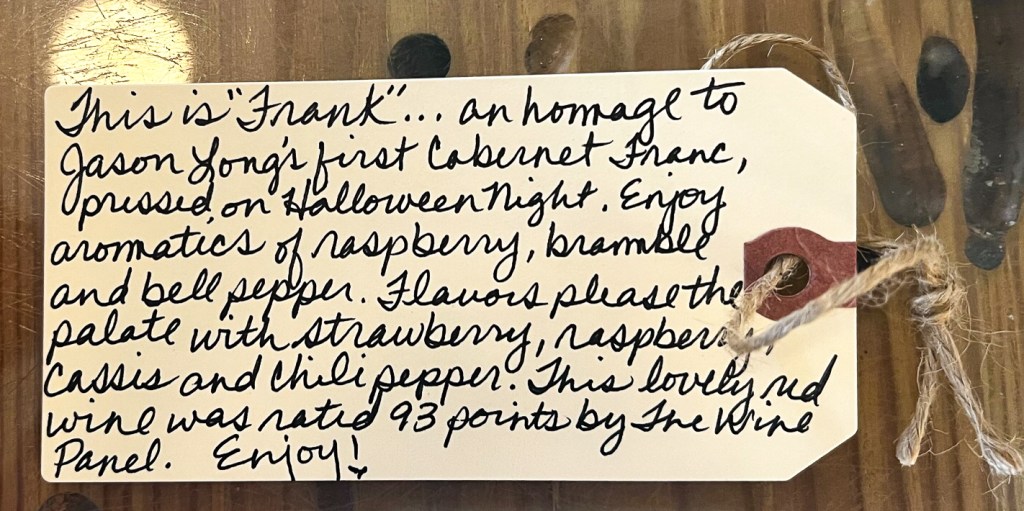 This is "Frank"... an homage to
Jason Long's first Cabernet Franc,
pressed on Halloween Night. Enjoy
aromatics of raspberry, bramble
and bell pepper. Flavors please the
palate with strawberry, raspberry,
cassis and chili pepper. This lovely red
wine was rated 93 points by The Wine
Panel. Enjoy!